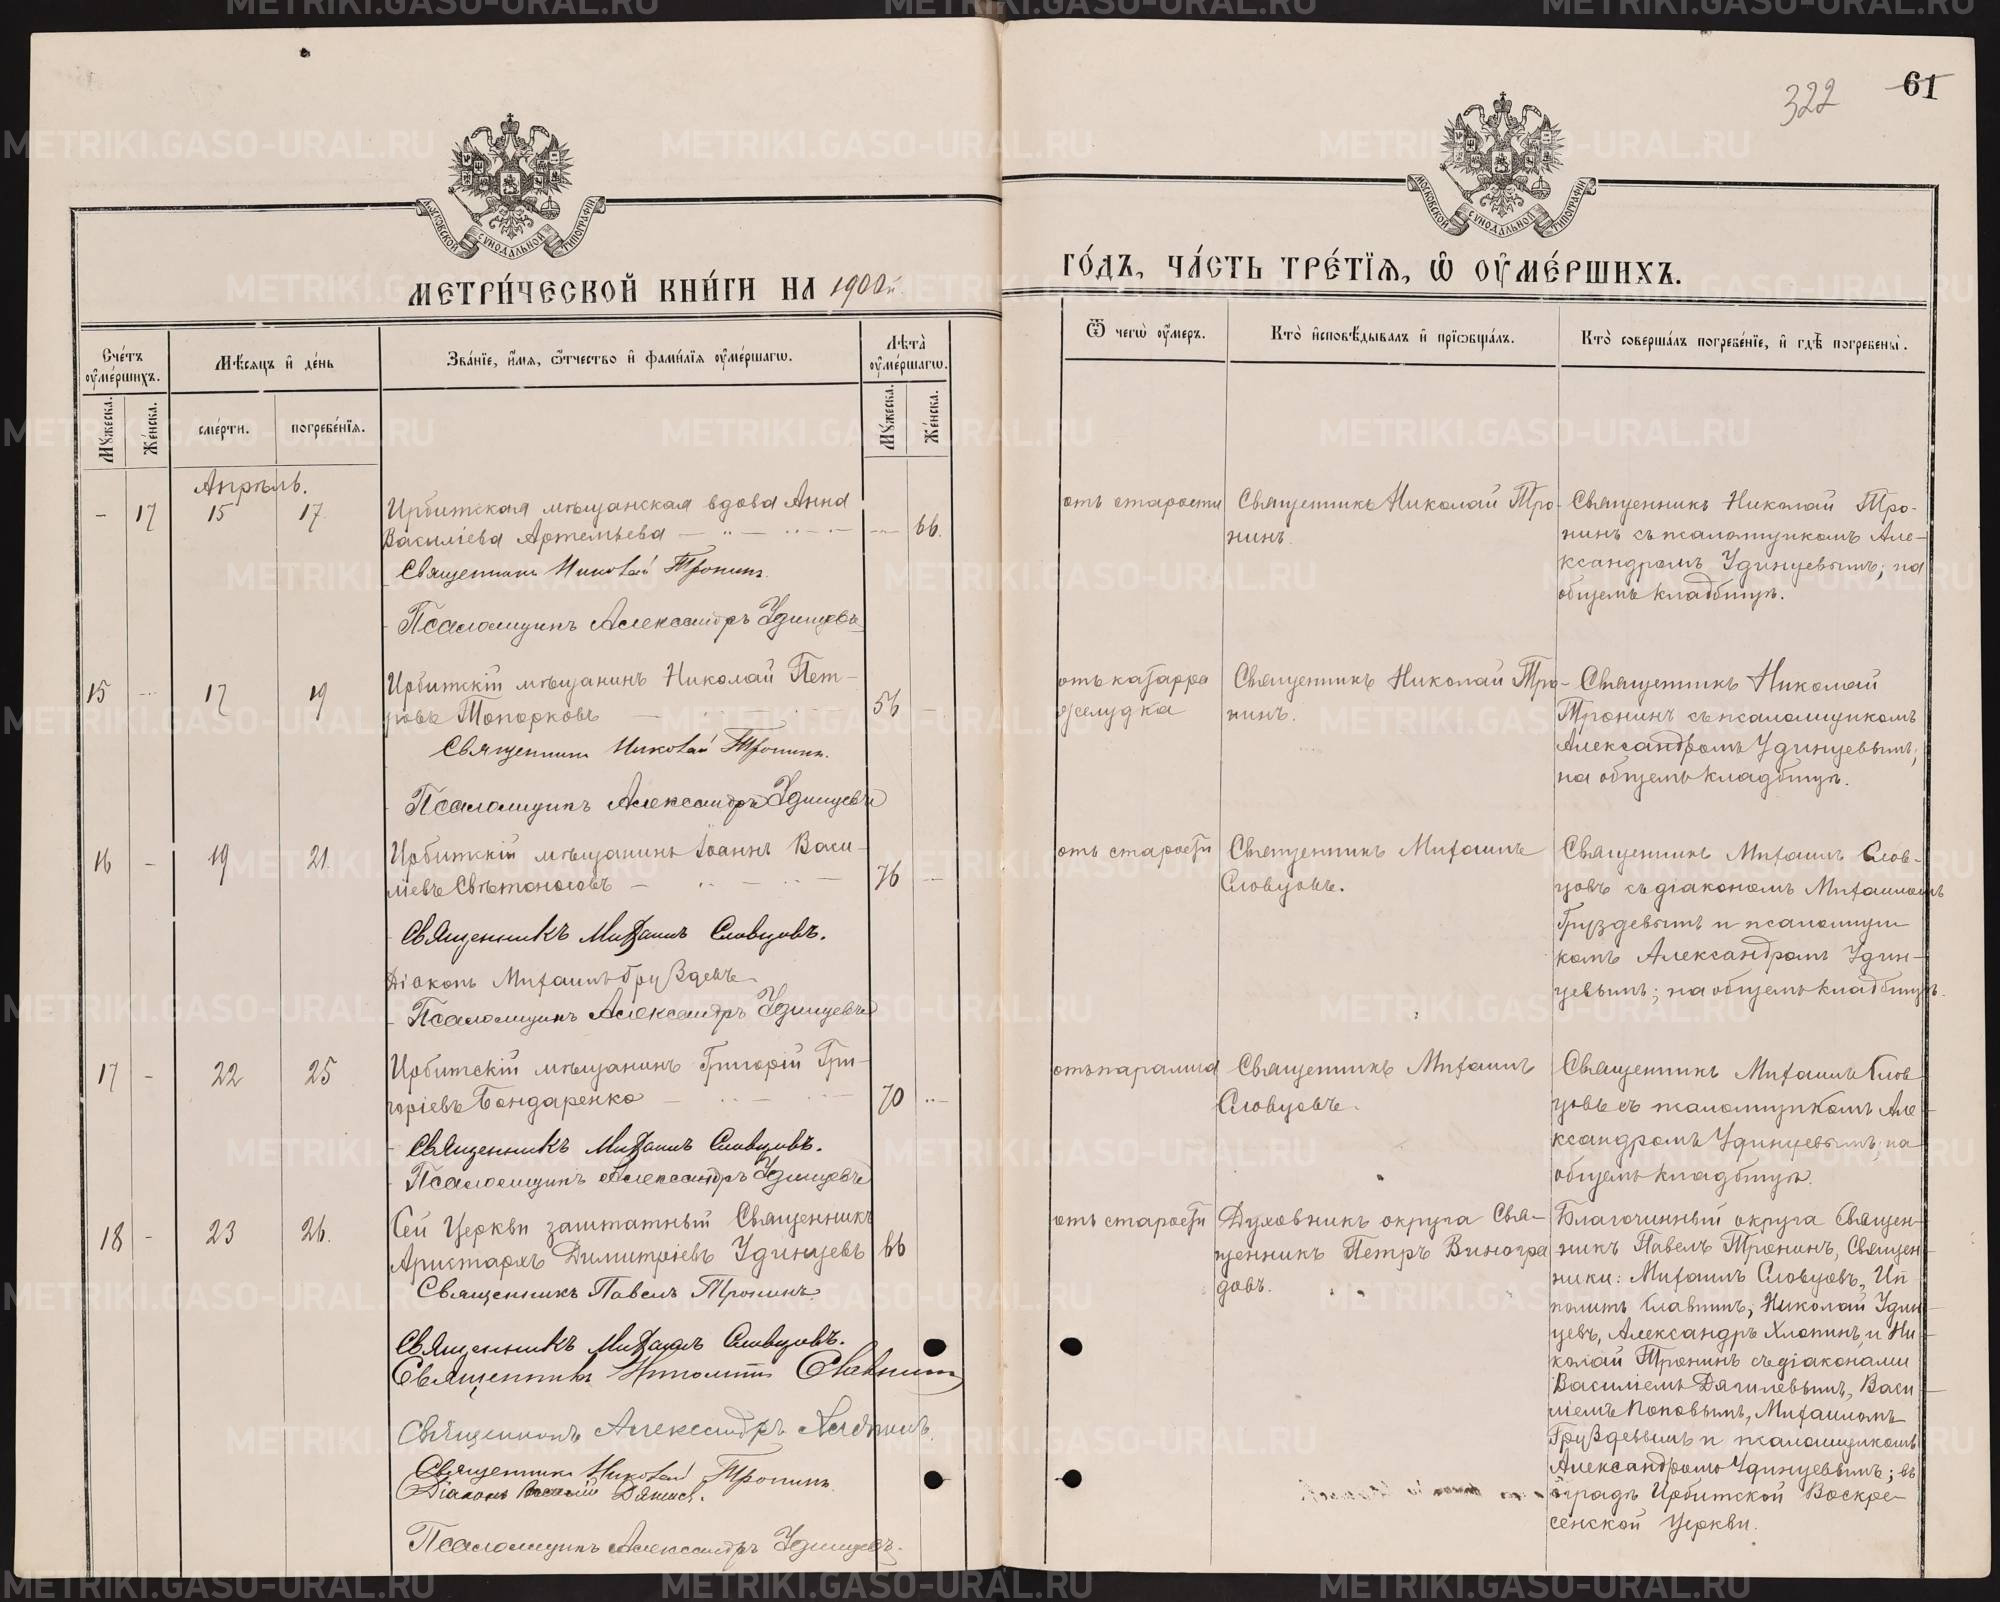 322
61
МОСКОВСКОЙ СѴНОДАЛЬНОЙ ТИПОГРАФІИ
МОСКОВСКОЙ СѴНОДАЛЬНОЙ ТИПОГРАФІИ
МЕТРИ́ЧЕСКОЙ КНИ́ГИ НА 1900 й
ГО́ДЪ, ЧА́СТЬ ТРЕ́ТІѦ, Ѡ ОУ҆МЕ́РШИХЪ.
Сче́тъ оу҆ме́ршихъ.
Мѣ́сѧцъ и҆ де́нь
Зва́нїе, и҆́мѧ, ѻ҆́тчество и҆ фами́лїѧ оу҆ме́ршагѡ.
Лѣ́та оу҆ме́ршагѡ.
Ѿ чегѡ̀ оу҆́меръ.
Кто̀ и҆сповѣ́дывалъ и҆ прїѡбща́лъ.
Кто̀ соверша́лъ погребе́нїе, и҆ гдѣ̀ погребены̀.
Мꙋ́жеска.
Же́нска.
сме́рти.
погребе́нїѧ.
Мꙋ́жеска.
Же́нска.
Апрѣль.
- 17 15 17 Ирбитская мѣщанская вдова Анна
Василіева Артемьева - 66.
Священникъ Николай Тронинъ.
Псаломщикъ Александръ Удинцевъ
отъ старости
Священникъ Николай Тро-
нинъ.
Священникъ Николай Тро-
нинъ съ псаломщикомъ Але-
ксандромъ Удинцевымъ; на
общемъ кладбищѣ.
15 - 17 19 Ирбитскій мѣщанинъ Николай Пет-
ровъ Топорковъ 56 -
Священникъ Николай Тронинъ.
Псаломщикъ Александръ Удинцевъ
отъ катарра
желудка
Священникъ Николай Тро-
нинъ.
Священникъ Николай
Тронинъ съ псаломщикомъ
Александромъ Удинцевымъ;
на общемъ кладбищѣ.
16 - 19 21 Ирбитскій мѣщанинъ Іоаннъ Васи-
ліевъ Свѣтоносовъ 76 -
Священникъ Михаилъ Словцовъ.
Діаконъ Михаилъ Груздевъ
Псаломщикъ Александръ Удинцевъ
отъ старости
Священникъ Михаилъ
Словцовъ.
Священникъ Михаилъ Слов-
цовъ съ діакономъ Михаиломъ
Груздевымъ и псаломщи
комъ Александромъ Удин-
цевымъ; на общемъ кладбищѣ.
17 - 22 25 Ирбитскій мѣщанинъ Григорій Гри-
горіевъ Бондаренко 70 -
Священникъ Михаилъ Словцовъ.
Псаломщикъ Александръ Удинцевъ
отъ паралича
Священникъ Михаилъ
Словцовъ.
Священникъ Михаилъ Слов
цовъ съ псаломщикомъ Але-
ксандромъ Удинцевымъ; на
общемъ кладбищѣ.
18 - 23 26. Сей Церкви заштатный Священникъ
Аристархъ Димитріевъ Удинцевъ 66
Священникъ Павелъ Тронинъ.
Священникъ Михаилъ Словцовъ.
Священникъ Ипполитъ Славнинъ
Священникъ Александръ Хлопинъ.
Священникъ Николай Тронинъ.
Діаконъ Василій
Псаломщикъ Александръ Удинцевъ.
отъ старости
Духовникъ округа Свя-
щенникъ Петръ Виногра
довъ.
Благочинный округа Священ-
никъ Павелъ Тронинъ, Священ-
ники: Михаилъ Словцовъ, Ип
политъ Славнинъ, Николай Удин-
цевъ, Александръ Хлопинъ, и Ни-
колай Тронинъ съ діаконами
Василіемъ Дягилевымъ, Васи-
ліемъ Поповымъ, Михаиломъ
Груздевымъ и псаломщикомъ
Александромъ Удинцевымъ; въ
оградѣ Ирбитской Воскре-
сенской Церкви.
METRIKI.GASO-URAL.RU